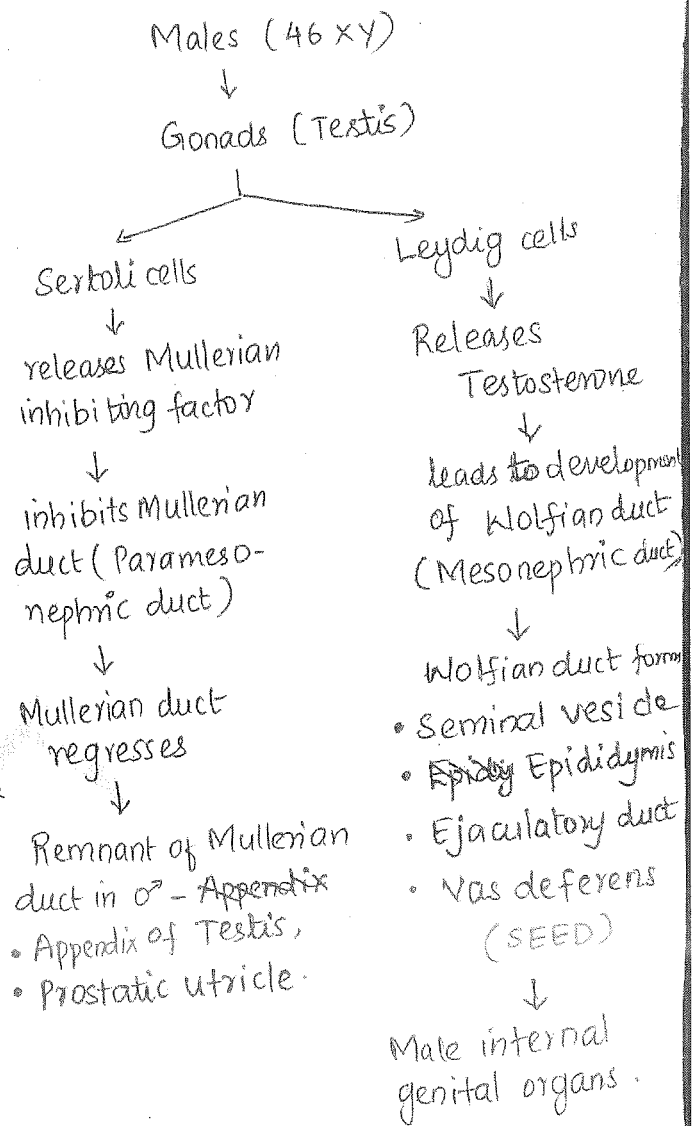 Males (46 XY)
↓
Gonads (Testis)
Sertoli cells
↓
releases Mullerian
inhibiting factor
↓
inhibits Mullerian
duct (Parameso-
nephric duct)
↓
Mullerian duct
regresses
↓
Remnant of Mullerian
duct in ♂ - Appendix
• Appendix of Testis,
• Prostatic utricle.
Leydig cells
↓
Releases
Testosterone
↓
leads to development
of Wolfian duct
(Mesonephric duct)
↓
Wolfian duct forms
• Seminal vesicle
• Epididymis
• Ejaculatory duct
• Vas deferens
(SEED)
↓
Male internal
genital organs.